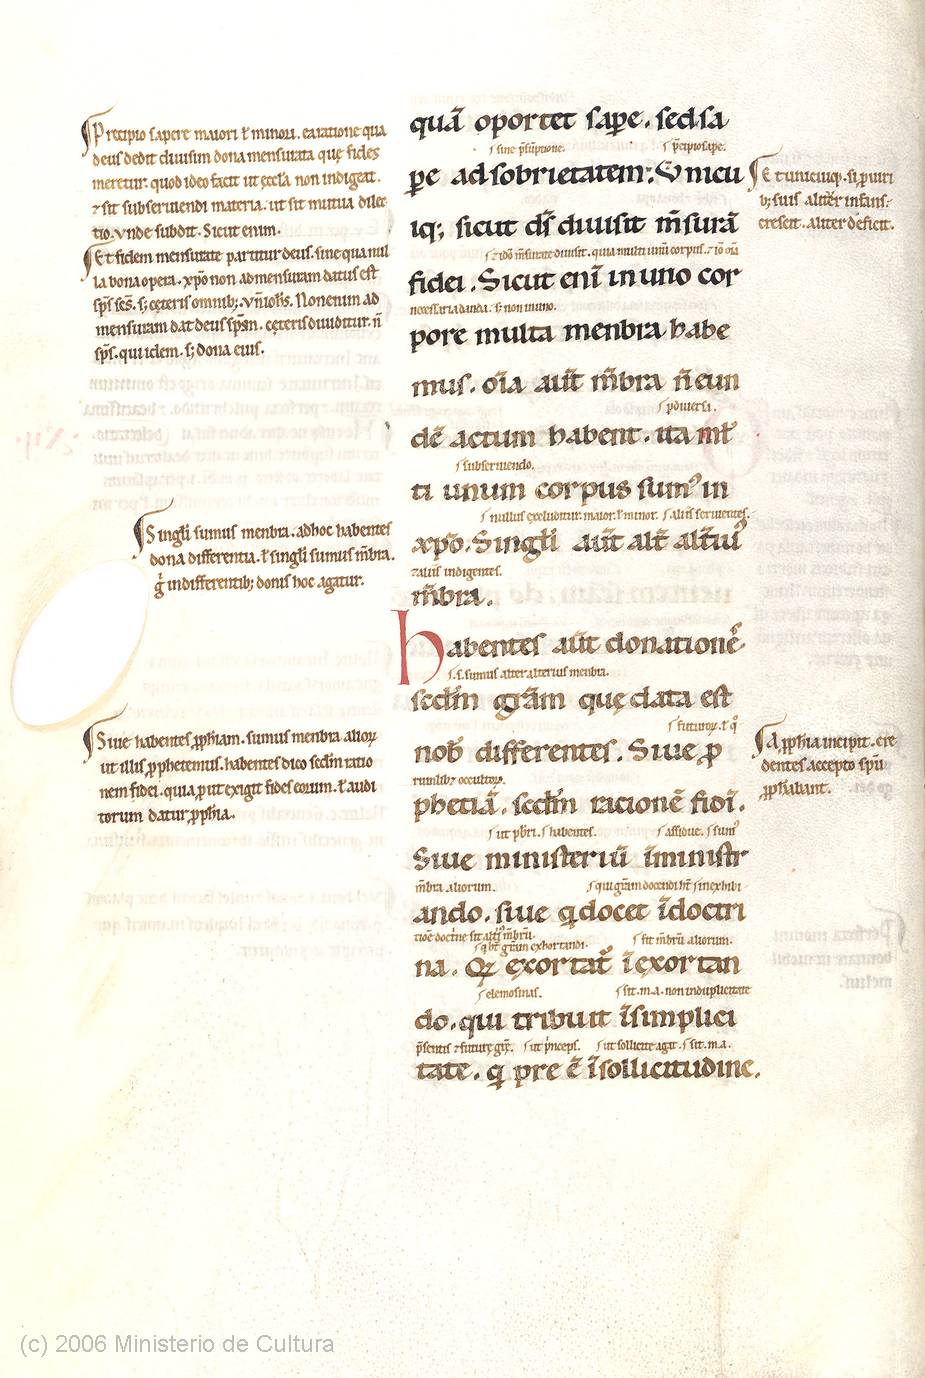 Precipio sapere maiori ł minori. ea ratione qua
deus dedit diuisim dona mensurata quę fides
meretur. quod ideo facit ut eccl̃a non indigeat.
⁊ sit subseruiendi materia. ut sit mutua dilec
tio. vnde subdit. Sicut enim.
Et fidem mensurate partitur deus. sine qua nul
la bona opera. xp̃o non ad mensuram datus est
sp̃s sc̃s. s; cęteris omnib;. Non enim ad
mensuram dat deus sp̃m. cęteris diuiditur. ñ
sp̃s. qui idem. s; dona eius.
Singl̃i sumus menbra. adhoc habentes
dona differentia. ł singl̃i sumus m̃bra.
g̊ indifferentib; donis hoc agatur.
Siue habentes ꝓph̃iam. sumus menbra alioꝝ
ut illis ꝓphetemus. habentes dico scd̃m ratio
nem fidei. quia ꝓut exigit fides eorum. ł audi
torum datur ꝓph̃ia.
quã oportet saꝑe. sed sa
sine p̃sũptione. p̃cipio sape.
ꝑe ad sobrietatem. Vnicu
iq; sicut dr̃ diuisit m̃surã
⁊ idõ m̃surate diuisit. quia multi unũ corpus. ⁊ iõ oĩa
fidei. Sicut enĩ in uno cor
necessaria danda. s; non in uno.
pore multa menbra habe
mus. oĩa aut̃ m̃bra ñ eun
ꝓ diuersi.
dẽ actum habent. ita ml̃
subseruiendo.
ti unum corpus sumꝰ in
nullus excluditur. maior. ł minor. aliis seruientes.
xp̃o. Singl̃i aut̃ alt̃ alt̃iuꝰ
⁊ aliis indigentes.
m̃bra.
habentes aut̃ donationẽ
.s. sumus alter alterius menbra.
scd̃m gr̃am quę data est
futuroꝝ. ł
nob̃ differentes. Siue ꝓ
occultoꝝ.
phetiã. scd̃m racionẽ fidĩ.
ut pb̃ri. habentes. assidue. sumꝰ
Siue ministeriũ ĩministr
m̃bra aliorum. qui gr̃am docendi hñt in exhibi
ando. siue q docet ĩ doctri
tiõe doctrine sit altiꝰ m̃brũ.
gr̃am exhortandi. sit m̃brũ aliorum.
na. Qꝫ exortat̃ ĩ exortan
elemosinas. sit .m.a. non in duplicitate
do. qui tribuit ĩ simplici
p̃sentis ⁊ future ut p̃nceps. ut sollicite agat. sit .m.a.
tate. q pre ẽ ĩ sollicitudine.
Et unicuiq;. si ꝓ uiri
b; suis aliter infans
crescit. aliter deficit.
A ꝓph̃ia incipit. cre
dentes accepto sp̃u
ꝓph̃abant.
(c) 2006 Ministerio de Cultura